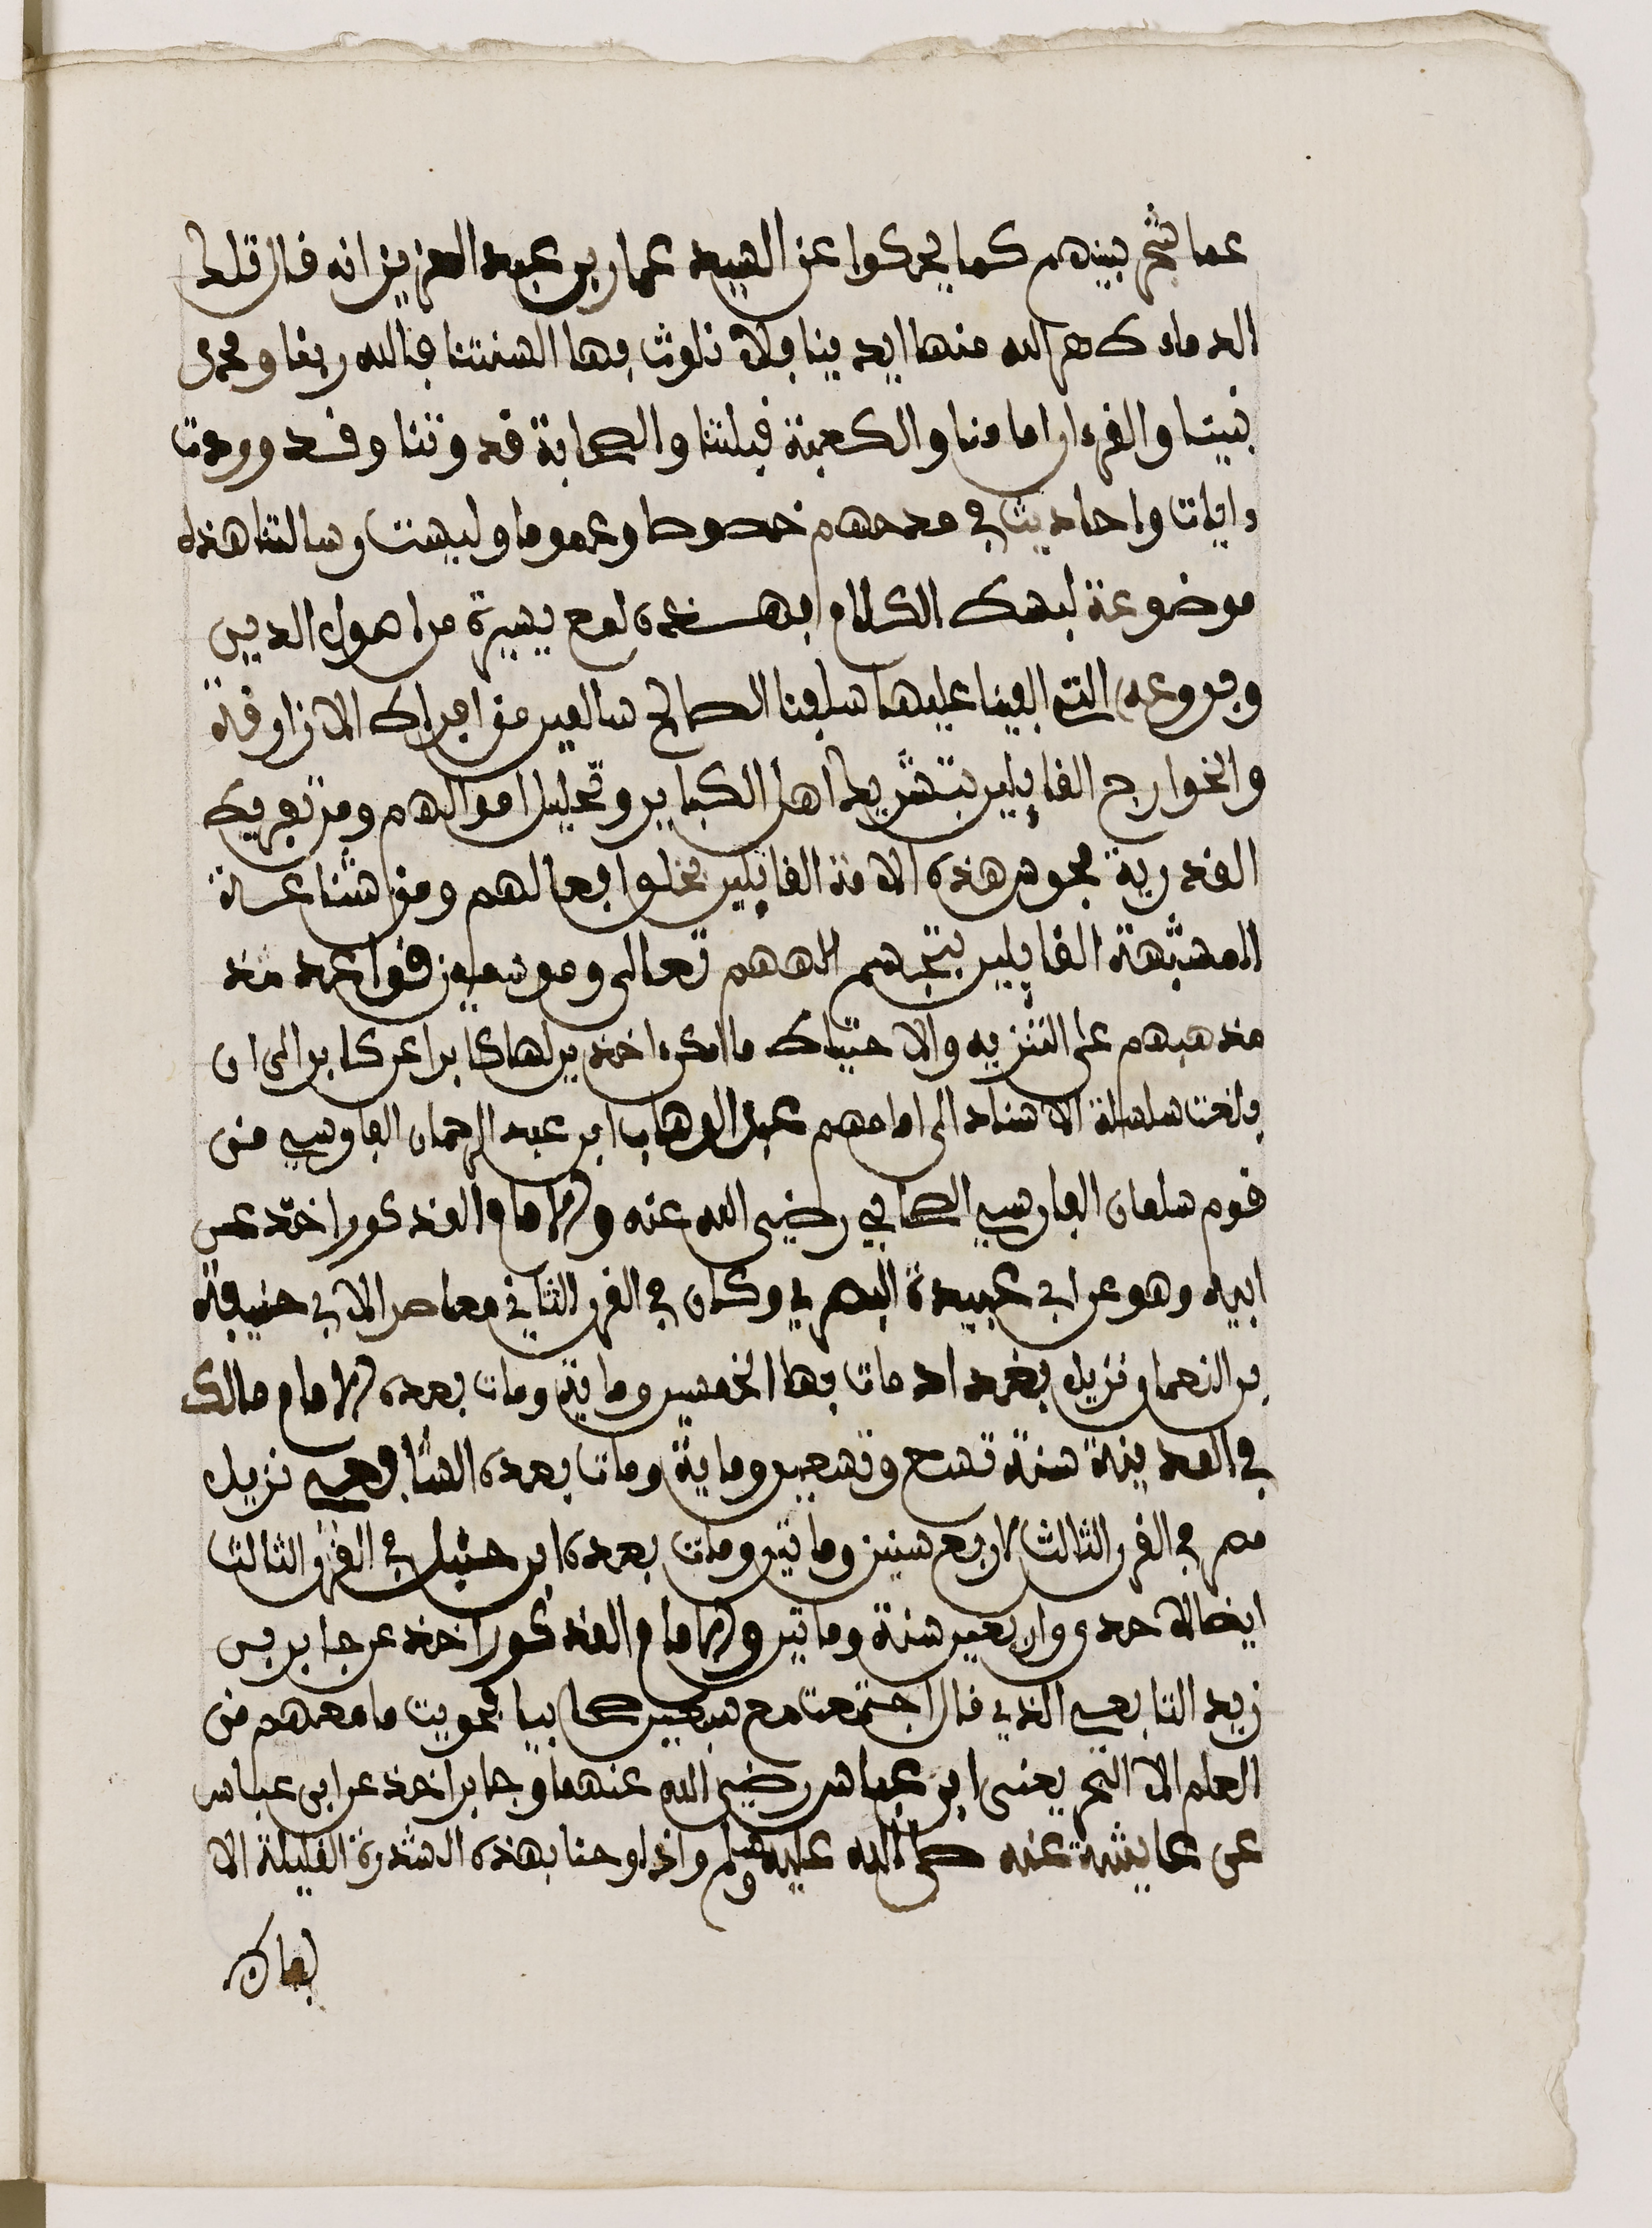 عما شجر بينهم كما يحكوا عن السيد عمار بن عبد العزيز انه قال تلك
الدماء طهر الله منها ايدينا فلا نلوث بها السنتنا فالله ربنا ومحمد
نبينا والقرءان امامنا والكعبة قبلتنا والصحابة قدوتنا وقد وردت
ءايات واحاديث في مدحهم خصوصا وعموما وليست رسالتنا هذه
موضوعة لبسط الكلام فهذه لمع يسيرة من اصول الدين
وفروعه التي الفينا عليها سلفنا الصالح سالمين من افراط الازارقة
والخوارج القايلين بتشريك اهل الكباير وتحليل اموالهم ومن تفريط
القدرية مجوس هذه الامة القايلين بخلوا فعالهم ومن شناعة
المشبهة القايلين بتجسم الاههم تعالى وموسسين قواعد مذ
مذهبهم على التنزيه والاحتياط ما امكن اخذين لها كابرا عن كابر الى ان
بلغت سلسلة الاسناد الى امامهم عبد الوهاب ابن عبد الرحمان الفارسي من
قوم سلمان الفارسي الصحابي رضي الله عنه والامام المذكور اخذ عن
ابيه وهو عن ابي عبيدة البصري وكان في القرن الثاني معاصر الابي حنيفة
بن النعمان نزيل بغداد مات بها الخمسين وماية ومات بعده الامام مالك
في المدينة سنة تسع وتسعين وماية ومات بعده الشافعي نزيل
مصر في القرن الثالث لاربع سنين وماتين ومات بعده ابن حنبل في القرن الثالث
ايضا لاحدى واربعين سنة وماتين والامام المذكور اخذ عن جابر بن
زيد التابعي الذي قال اجتمعت مع سبعين صحابيا فحويت ما معهم من
العلم الا البحر يعنى ابن عباس رضي الله عنهما وجابر اخذ عن ابن عباس
عن عايشة عنه صلى الله عليه وسلم واذا لوحنا بهذه الشذرة القليلة الا